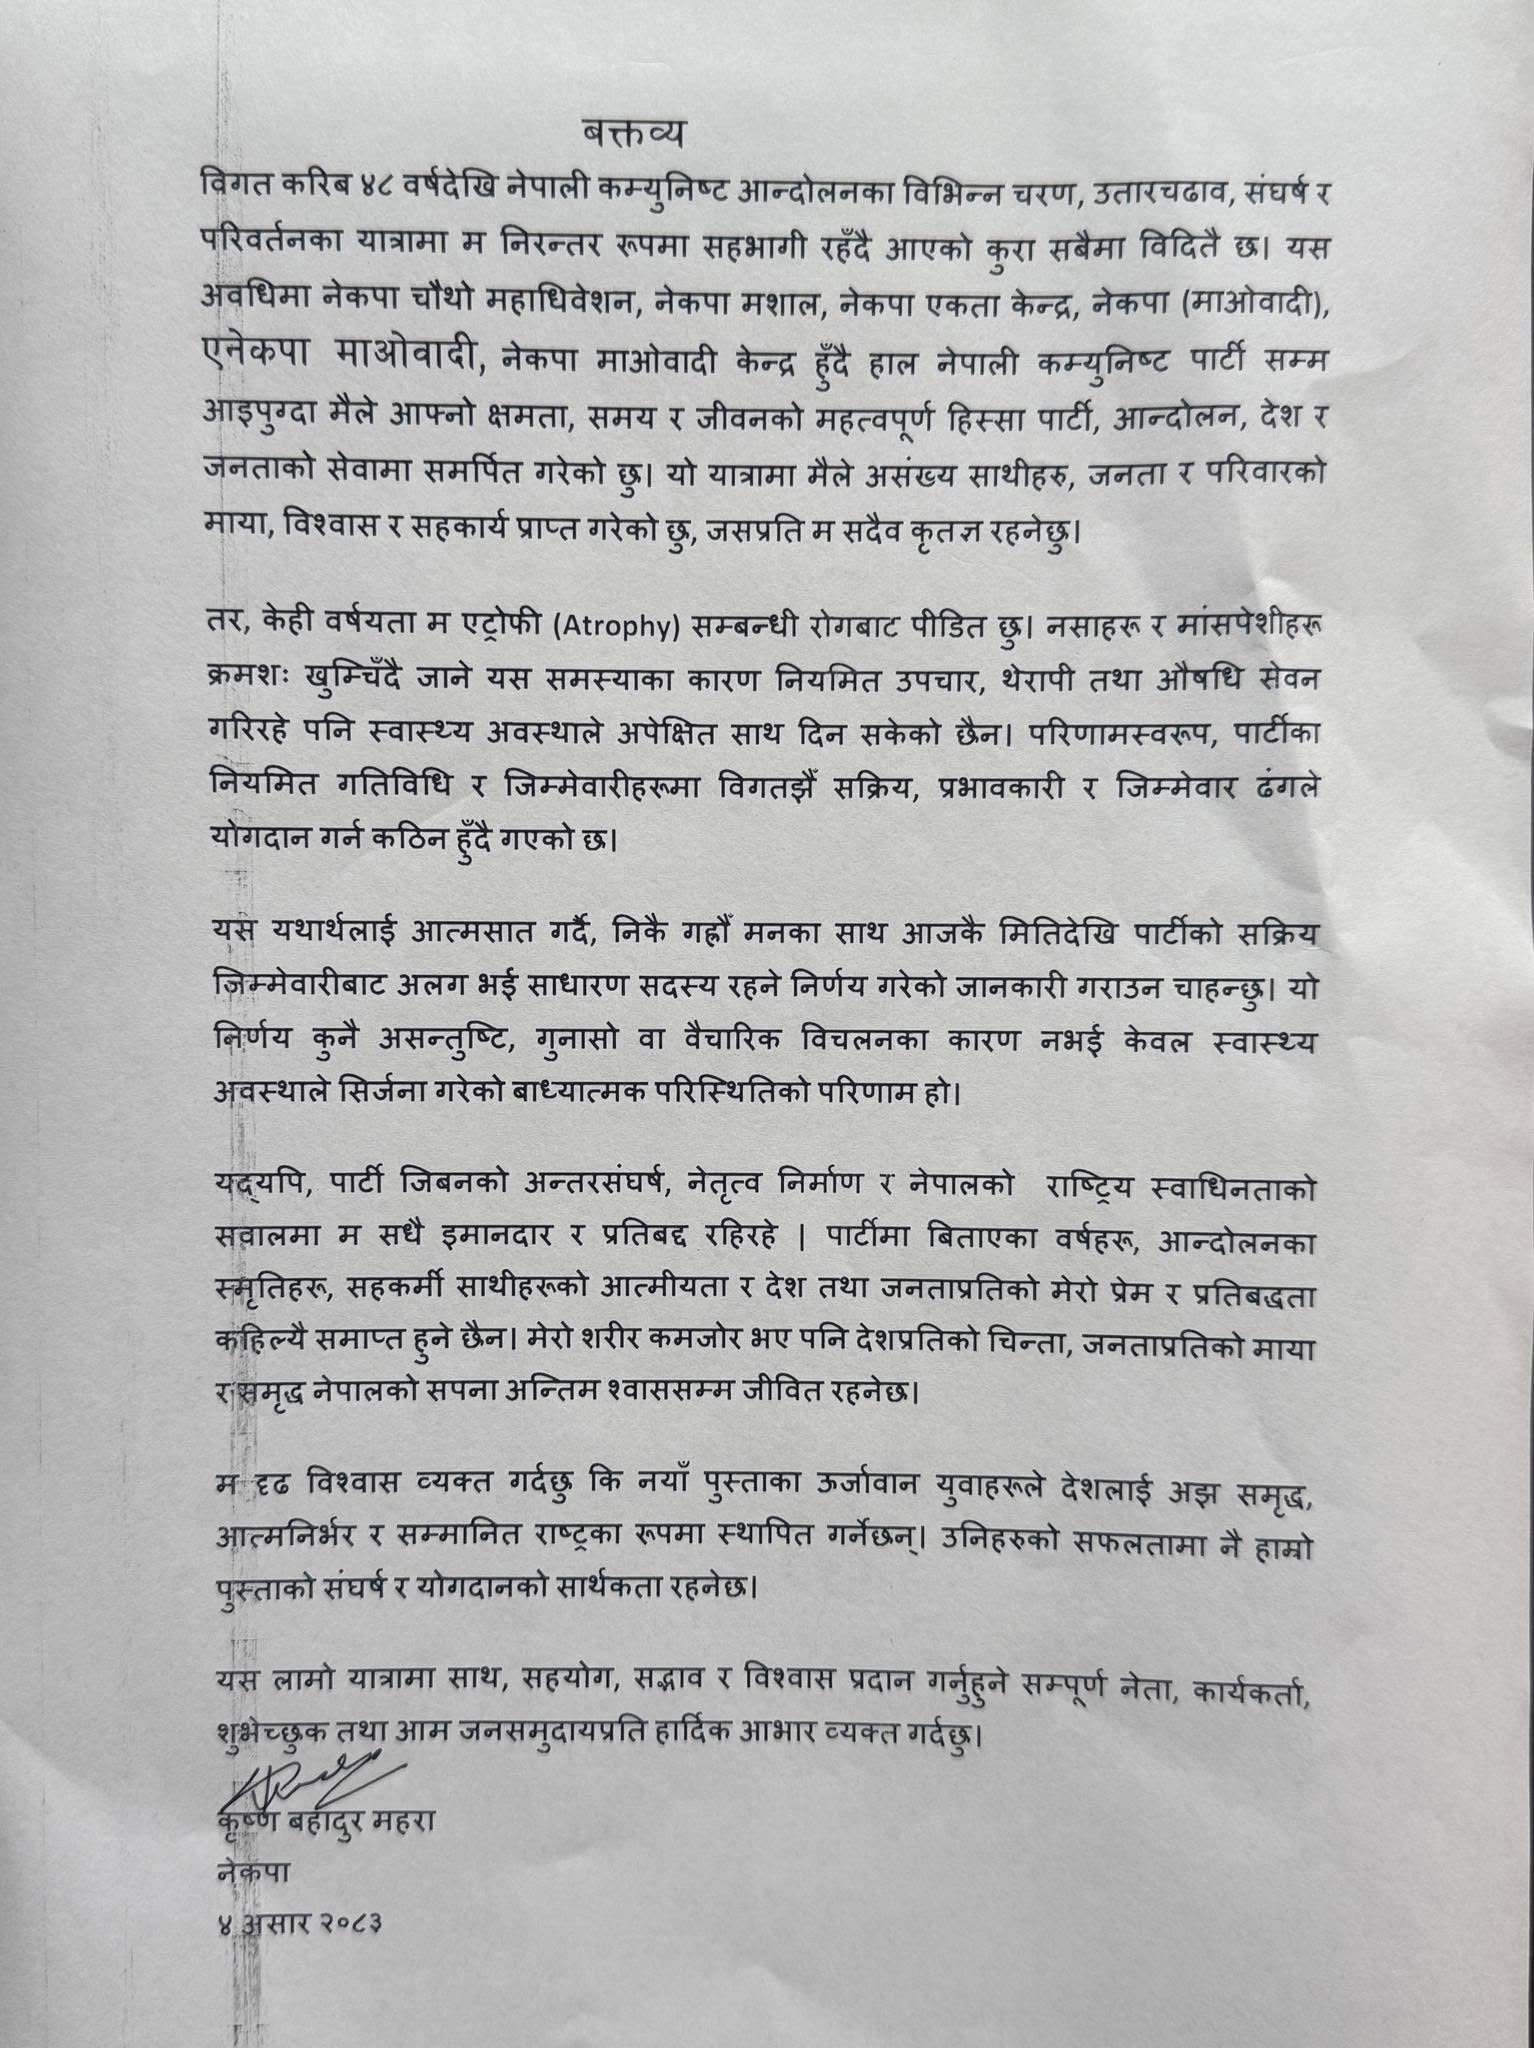 बक्तव्य
विगत करिब ४८ वर्षदेखि नेपाली कम्युनिष्ट आन्दोलनका विभिन्न चरण, उतारचढाव, संघर्ष र
परिवर्तनका यात्रामा म निरन्तर रूपमा सहभागी रहँदै आएको कुरा सबैमा विदितै छ। यस
अवधिमा नेकपा चौथो महाधिवेशन, नेकपा मशाल, नेकपा एकता केन्द्र, नेकपा (माओवादी),
एनेकपा माओवादी, नेकपा माओवादी केन्द्र हुँदै हाल नेपाली कम्युनिष्ट पार्टी सम्म
आइपुग्दा मैले आफ्नो क्षमता, समय र जीवनको महत्वपूर्ण हिस्सा पार्टी, आन्दोलन, देश र
जनताको सेवामा समर्पित गरेको छु। यो यात्रामा मैले असंख्य साथीहरु, जनता र परिवारको
माया, विश्वास र सहकार्य प्राप्त गरेको छु, जसप्रति म सदैव कृतज्ञ रहनेछु।
तर, केही वर्षयता म एट्रोफी (Atrophy) सम्बन्धी रोगबाट पीडित छु। नसाहरू र मांसपेशीहरू
क्रमशः खुम्चिँदै जाने यस समस्याका कारण नियमित उपचार, थेरापी तथा औषधि सेवन
गरिरहे पनि स्वास्थ्य अवस्थाले अपेक्षित साथ दिन सकेको छैन। परिणामस्वरूप, पार्टीका
नियमित गतिविधि र जिम्मेवारीहरूमा विगतझैँ सक्रिय, प्रभावकारी र जिम्मेवार ढंगले
योगदान गर्न कठिन हुँदै गएको छ।
यस यथार्थलाई आत्मसात गर्दै, निकै गह्रौँ मनका साथ आजकै मितिदेखि पार्टीको सक्रिय
जिम्मेवारीबाट अलग भई साधारण सदस्य रहने निर्णय गरेको जानकारी गराउन चाहन्छु। यो
निर्णय कुनै असन्तुष्टि, गुनासो वा वैचारिक विचलनका कारण नभई केवल स्वास्थ्य
अवस्थाले सिर्जना गरेको बाध्यात्मक परिस्थितिको परिणाम हो।
यद्यपि, पार्टी जिबनको अन्तरसंघर्ष, नेतृत्व निर्माण र नेपालको राष्ट्रिय स्वाधिनताको
सवालमा म सधै इमानदार र प्रतिबद्द रहिरहे | पार्टीमा बिताएका वर्षहरू, आन्दोलनका
स्मृतिहरू, सहकर्मी साथीहरूको आत्मीयता र देश तथा जनताप्रतिको मेरो प्रेम र प्रतिबद्धता
कहिल्यै समाप्त हुने छैन। मेरो शरीर कमजोर भए पनि देशप्रतिको चिन्ता, जनताप्रतिको माया
र समृद्ध नेपालको सपना अन्तिम श्वाससम्म जीवित रहनेछ।
म दृढ विश्वास व्यक्त गर्दछु कि नयाँ पुस्ताका ऊर्जावान युवाहरूले देशलाई अझ समृद्ध,
आत्मनिर्भर र सम्मानित राष्ट्रका रूपमा स्थापित गर्नेछन्। उनिहरुको सफलतामा नै हाम्रो
पुस्ताको संघर्ष र योगदानको सार्थकता रहनेछ।
यस लामो यात्रामा साथ, सहयोग, सद्भाव र विश्वास प्रदान गर्नुहुने सम्पूर्ण नेता, कार्यकर्ता,
शुभेच्छुक तथा आम जनसमुदायप्रति हार्दिक आभार व्यक्त गर्दछु।
कृष्ण बहादुर महरा
नेकपा
४ असार २०८३